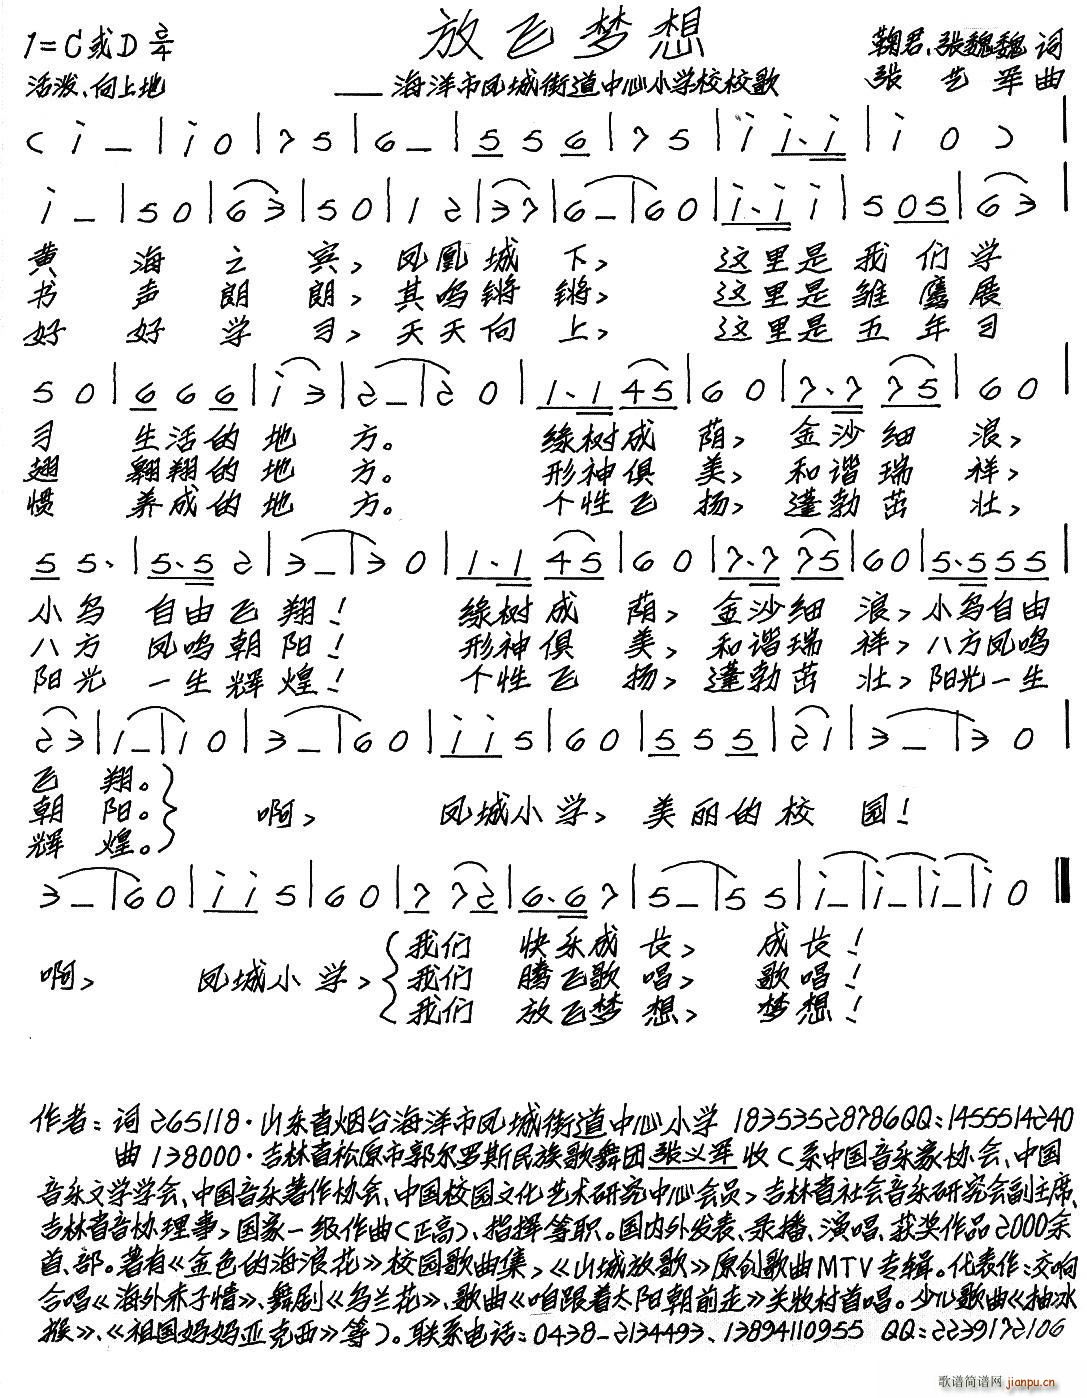 放飞梦想
1=C或D 2/4
鞠君、张魏魏 词
活泼、向上地
——海洋市凤城街道中心小学校校歌
张艺军 曲
( i – | i 0 | 7 5 | 6 – | 5 5 6 | 7 5 | i i·i | i 0 ) |
i – | 5 0 | 6 3 | 5 0 | 1 2 | 3 7 | 6 – | 6 0 | i·i i | 5 0 5 | 6 3 |
黄 海 之 宾, 凤凰城 下, 这里是 我 们 学
书 声 朗 朗, 其鸣锵 锵, 这里是 雏 鹰 展
好 好 学 习, 天天向 上, 这里是 五 年 习
5 0 | 6 6 6 | i 3 | 2 – | 2 0 | 1·1 4 5 | 6 0 | 7·7 7 5 | 6 0 |
习 生活的 地 方。 绿树成 荫, 金沙细 浪,
翅 翱翔的 地 方。 形神俱 美, 和谐瑞 祥,
惯 养成的 地 方。 个性飞 扬, 蓬勃茁 壮,
5 5· | 5·5 2 | 3 – | 3 0 | 1·1 4 5 | 6 0 | 7·7 7 5 | 6 0 | 5·5 5 5 |
小鸟 自由飞 翔! 绿树成 荫, 金沙细 浪, 小鸟自由
八方 凤鸣朝 阳! 形神俱 美, 和谐瑞 祥, 八方凤鸣
阳光 一生辉 煌! 个性飞 扬, 蓬勃茁 壮, 阳光一生
2 3 | 1 – | 1 0 | 3 – | 6 0 | i i 5 | 6 0 | 5 5 5 | 2 1 | 3 – | 3 0 |
飞 翔。
朝 阳。 啊, 凤城小 学, 美丽的 校 园!
辉 煌。
3 – | 6 0 | i i 5 | 6 0 | 7 7 2 | 6·6 7 | 5 – | 5 5 | i – | i – | i – | i 0
我们 快乐成 长, 成 长!
啊, 凤城小 学, 我们 腾飞歌 唱, 歌 唱!
我们 放飞梦 想, 梦 想!
作者: 词 265118·山东省烟台海洋市凤城街道中心小学 18353528786QQ:1455514240
曲 138000·吉林省松原市郭尔罗斯民族歌舞团张义军 收(系中国音乐家协会、中国
音乐文学学会、中国音乐著作协会、中国校园文化艺术研究中心会员,吉林省社会音乐研究会副主席、
吉林省音协理事,国家一级作曲(正高)、指挥等职。国内外发表、录播、演唱、获奖作品2000余
首、部。著有《金色的海浪花》校园歌曲集,《山城放歌》原创歌曲MTV专辑。代表作:交响
合唱《海外赤子情》、舞剧《乌兰花》、歌曲《咱跟着太阳朝前走》关牧村首唱。少儿歌曲《抽冰
猴》、《祖国妈妈亚克西》等)。联系电话:0438-2134493、13894110955 QQ:2239172106
歌谱简谱网
jianpu.cn